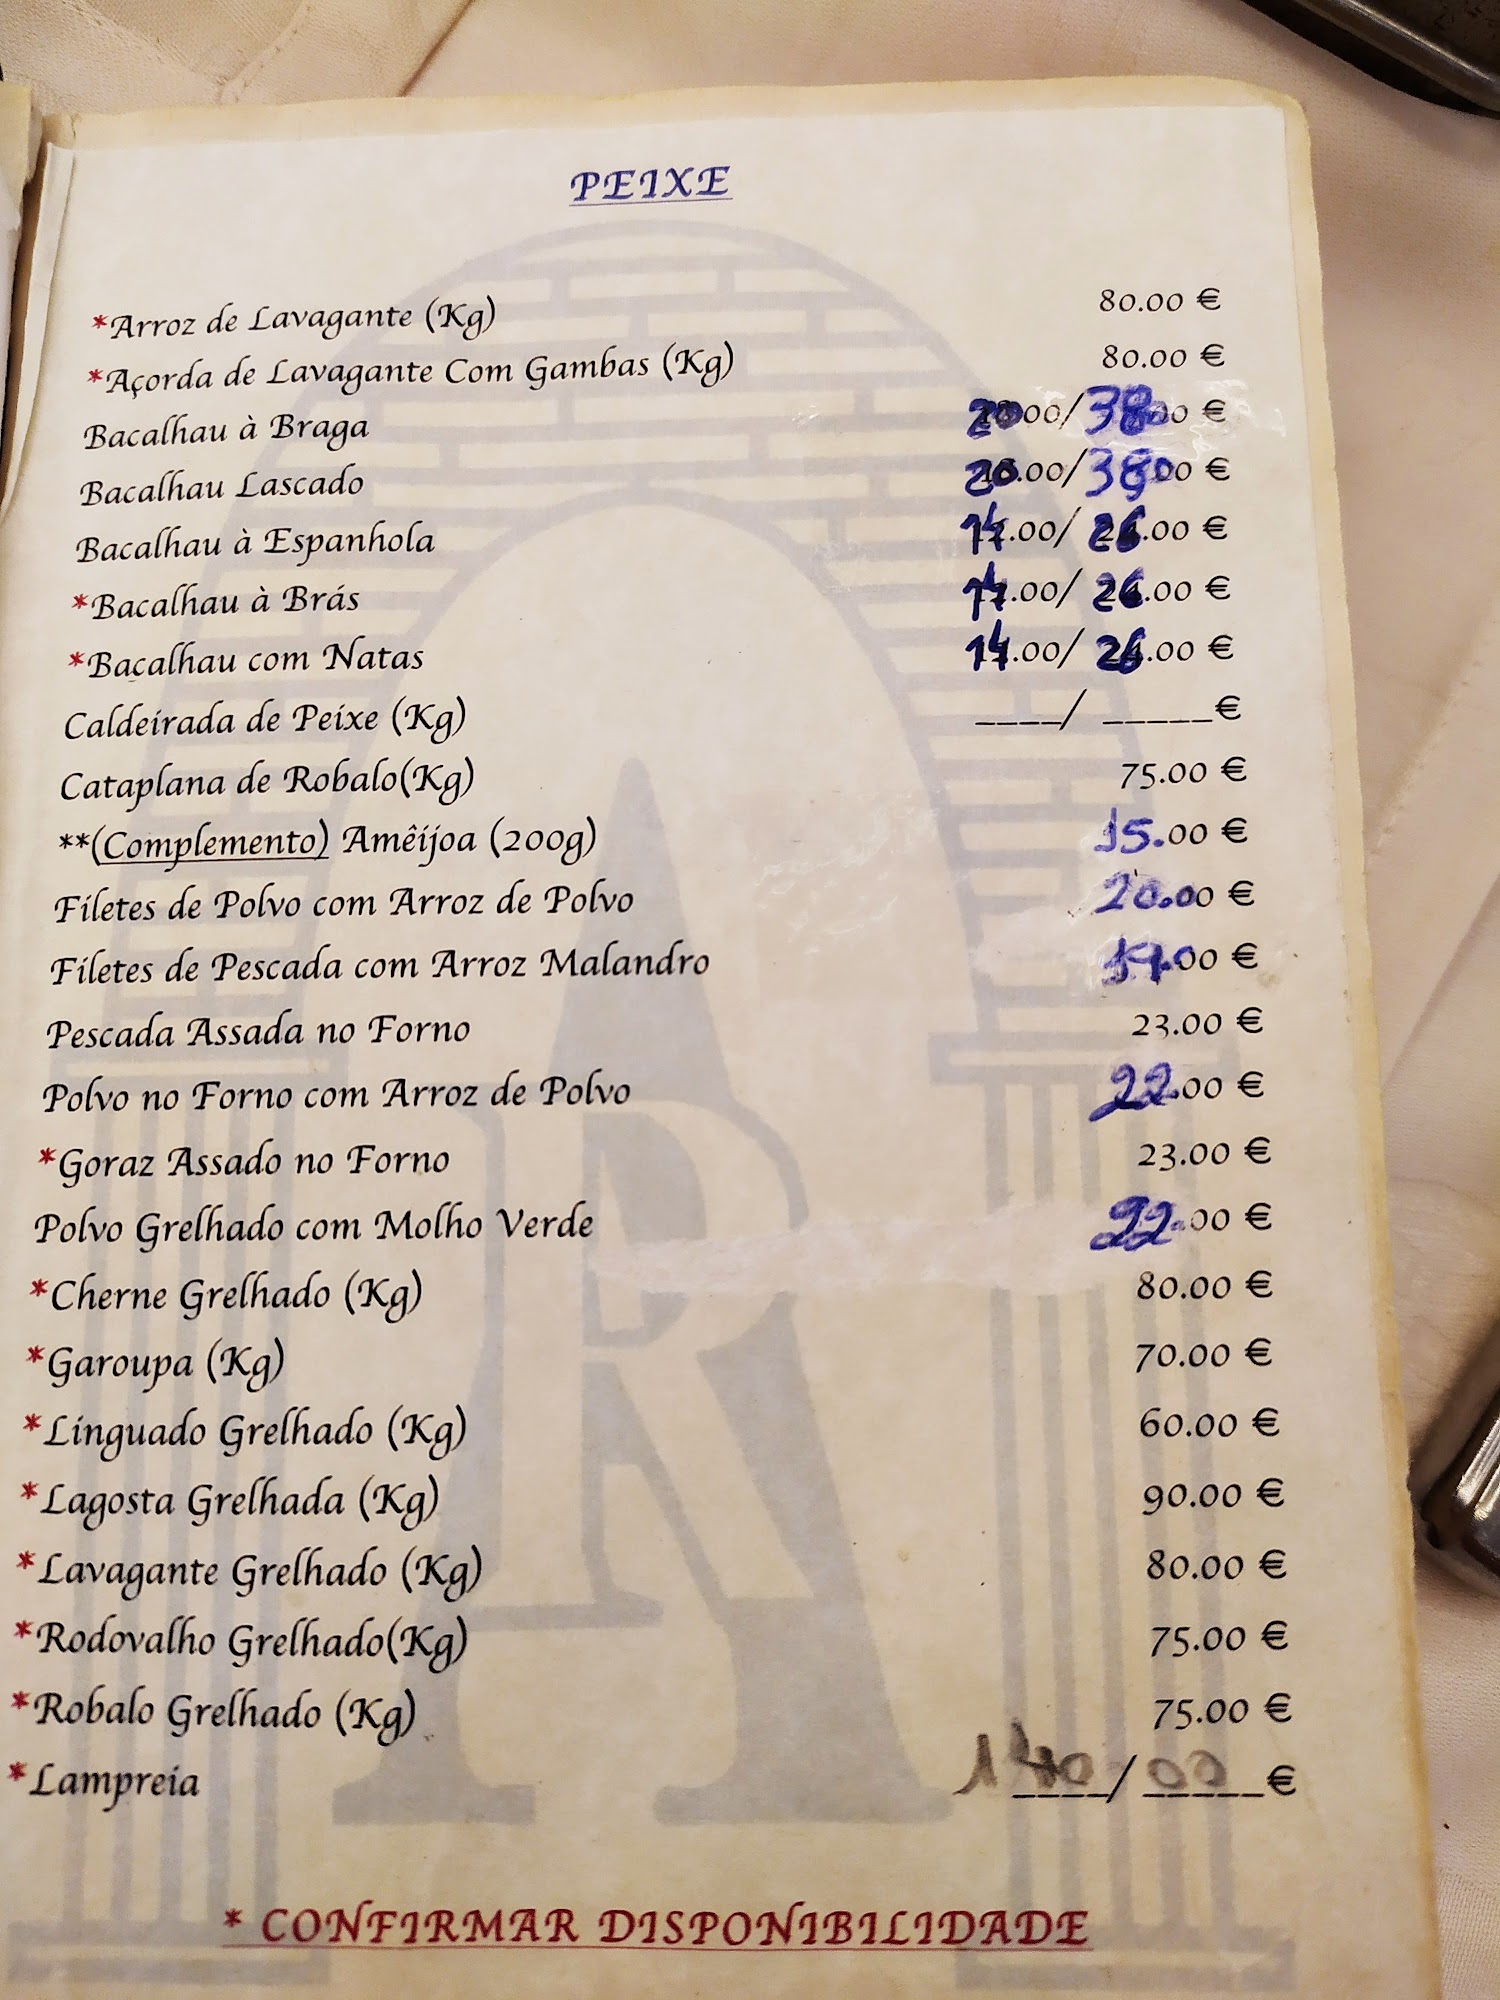 PEIXE
*Arroz de Lavagante (Kg) 80.00 €
*Açorda de Lavagante Com Gambas (Kg) 80.00 €
Bacalhau à Braga 20.00/38.00 €
Bacalhau Lascado 20.00/38.00 €
Bacalhau à Espanhola 14.00/ 26.00 €
*Bacalhau à Brás 14.00/ 26.00 €
*Bacalhau com Natas 14.00/ 26.00 €
Caldeirada de Peixe (Kg) ____/ _____€
Cataplana de Robalo(Kg) 75.00 €
**(Complemento) Amêijoa (200g) 15.00 €
Filetes de Polvo com Arroz de Polvo 20.00 €
Filetes de Pescada com Arroz Malandro .00 €
Pescada Assada no Forno 23.00 €
Polvo no Forno com Arroz de Polvo 22.00 €
*Goraz Assado no Forno 23.00 €
Polvo Grelhado com Molho Verde 22.00 €
*Cherne Grelhado (Kg) 80.00 €
*Garoupa (Kg) 70.00 €
*Linguado Grelhado (Kg) 60.00 €
*Lagosta Grelhada (Kg) 90.00 €
*Lavagante Grelhado (Kg) 80.00 €
*Rodovalho Grelhado(Kg) 75.00 €
*Robalo Grelhado (Kg) 75.00 €
*Lampreia 140/00€
* CONFIRMAR DISPONIBILIDADE